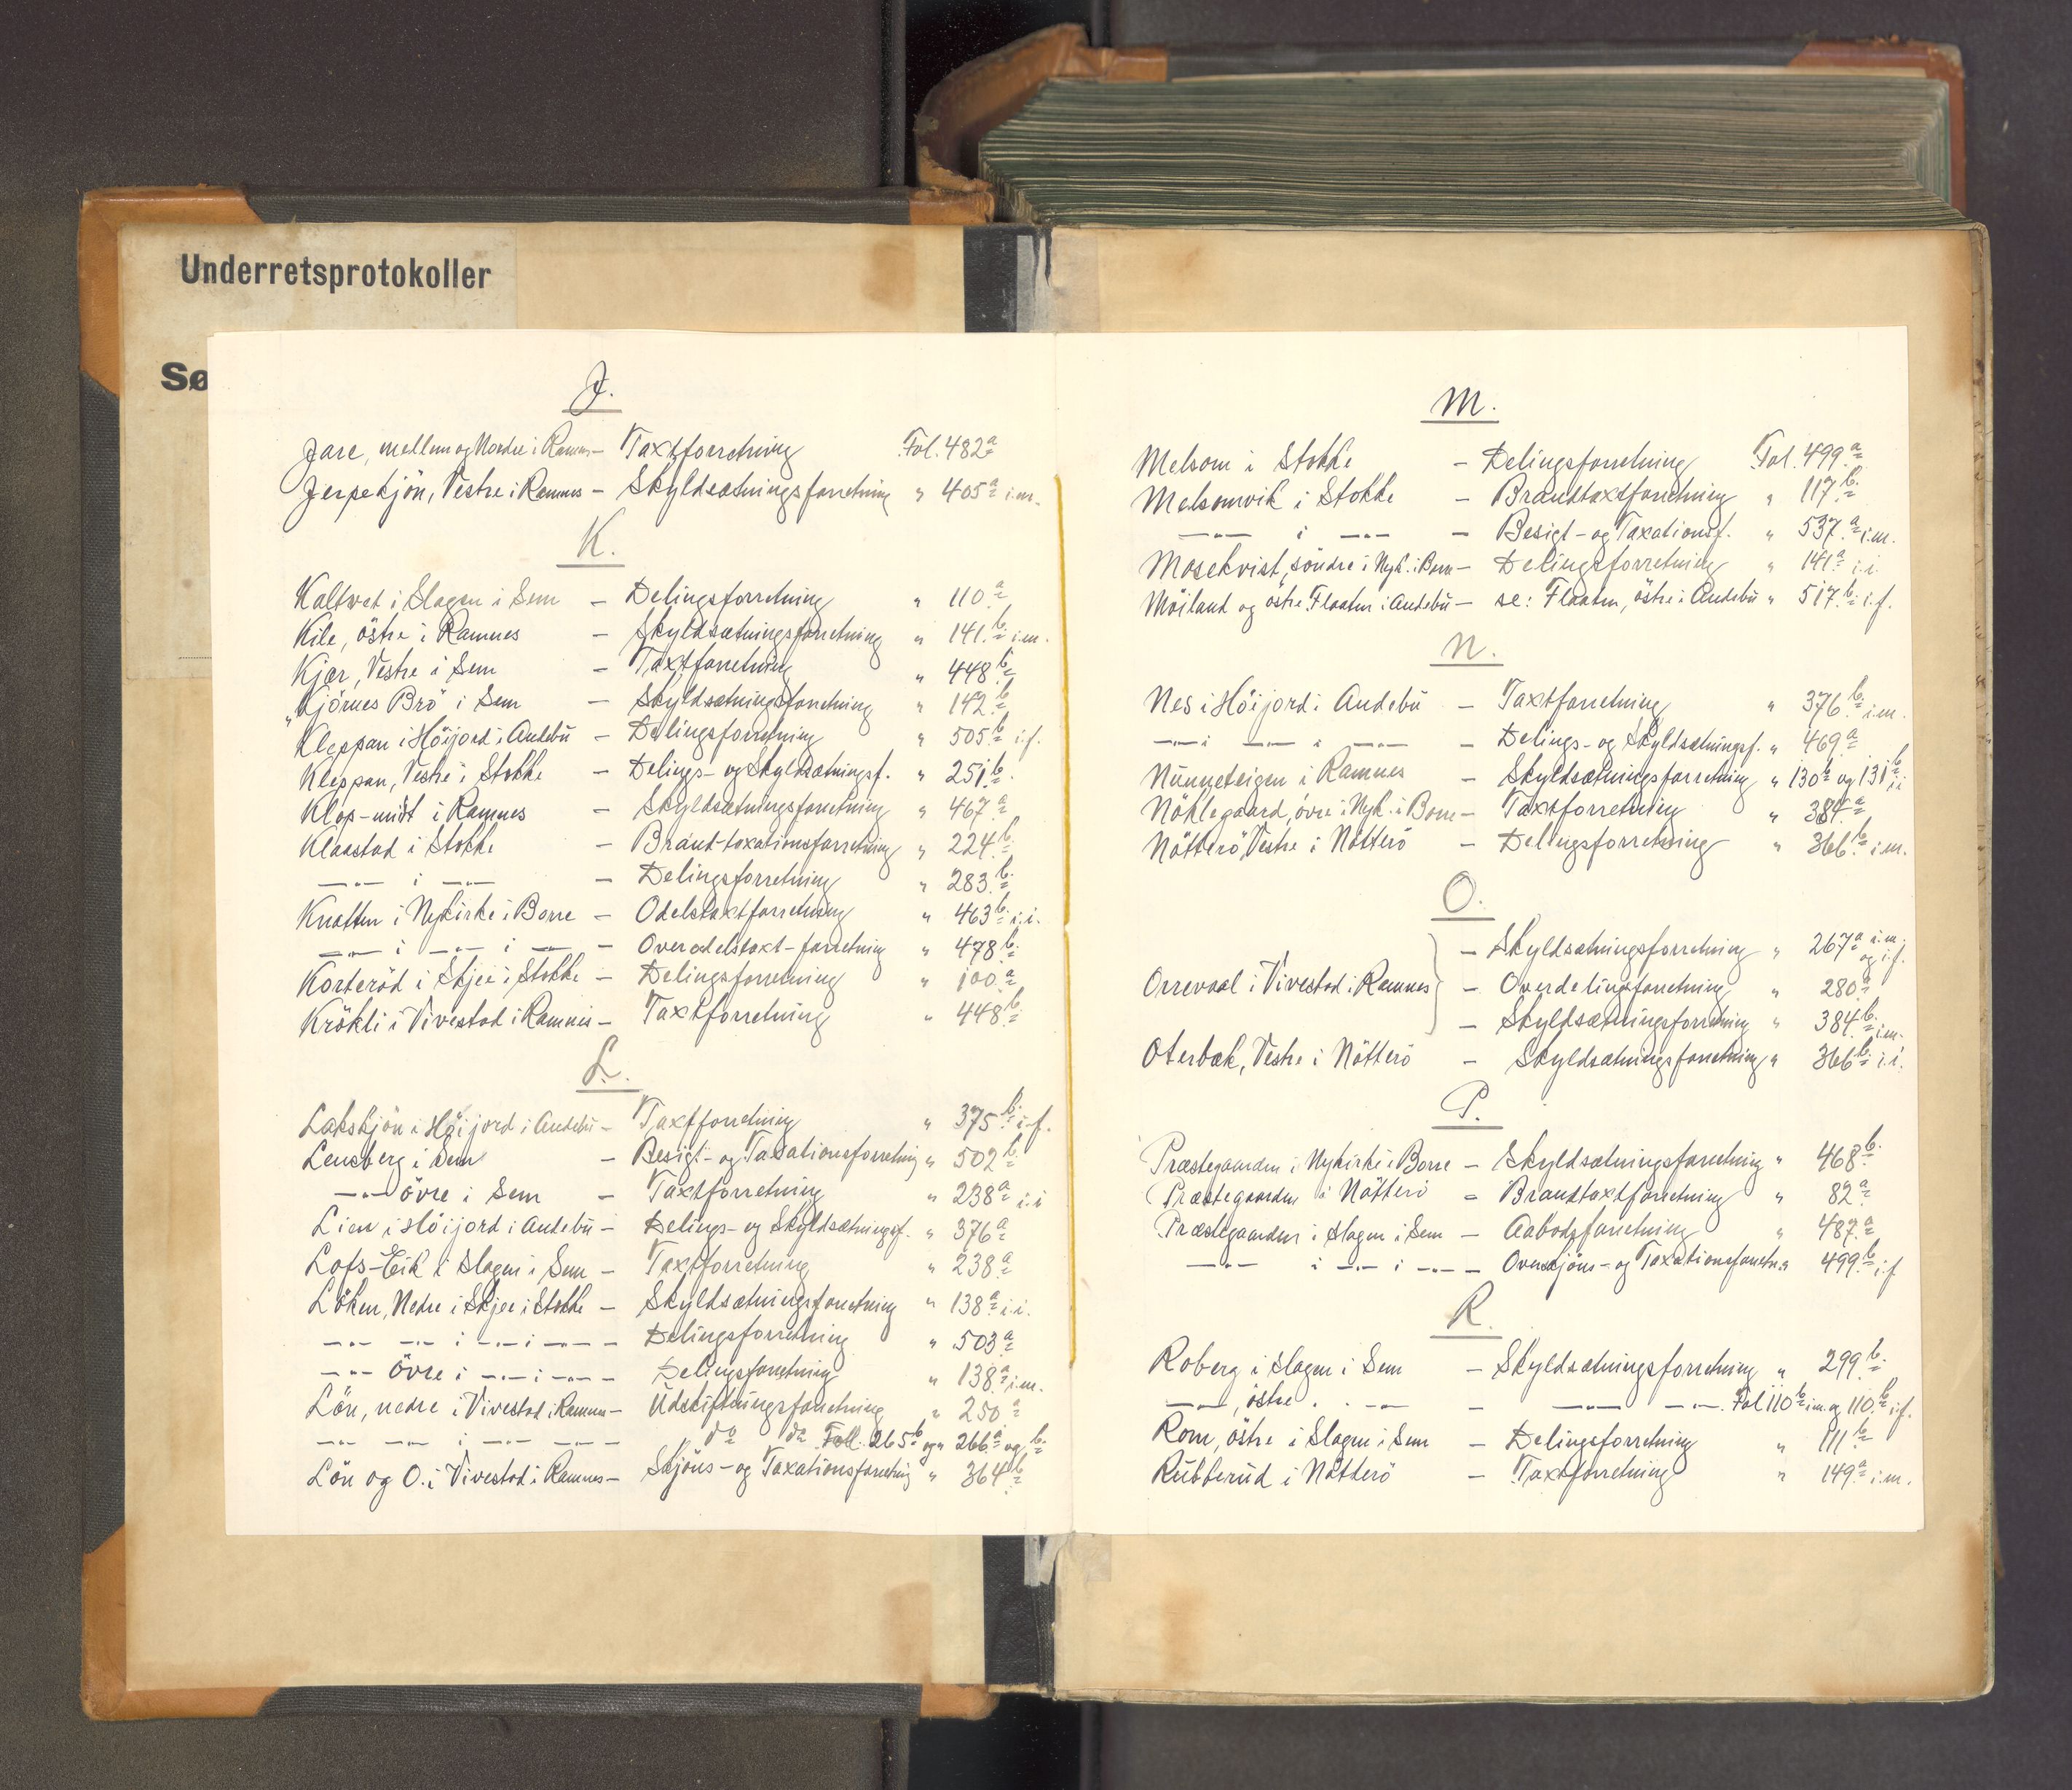 Underretsprotokoller
Sø
J.
Jare, mellem og Nordre i Ramnes – Taxtforretning Fol. 482a
Jerpekjön, Vestre i Ramnes – Skyldsætningsforretning " 405a i.m.
K.
Kaltvet i Slagen i Sem – Delingsforretning " 110a
Kile, östre i Ramnes – Skyldsætningsforretning " 141b i.m.
Kjær, Vestre i Sem – Taxtforretning " 448b
"Kjörnes Brö i Sem – Skyldsætningsforretning " 142b
Kleppan i Höijord i Andebu – Delingsforretning " 505b i.f.
Kleppan, Vestre i Stokke – Delings- og Skyldsætningsf. " 251b.
Klop-midt i Ramnes – Skyldsætningsforretning " 467a
Klaastad i Stokke – Brand-taxationsforretning " 224b
—"— i —"— – Delingsforretning " 283b
Knatten i Nykirke i Borre – Odelstaxtforretning " 463b i.i.
—"— i —"— i —"— – Overodelstaxt-forretning " 478b
Korteröd i Skjee i Stokke – Delingsforretning " 100a
Krökli i Vivestad i Ramnes – Taxtforretning " 448b
L.
Lakskjön i Höijord i Andebu – Taxtforretning " 375b i.f.
Lensberg i Sem – Besigt- og Taxationsforretning " 502b
—"— övre i Sem – Taxtforretning " 238a i.i
Lien i Höijord i Andebu – Delings- og Skyldsætningsf. " 376a
Lofs-Eik i Slagen i Sem – Taxtforretning " 238a
Löken, Nedre i Skjee i Stokke – Skyldsætningsforretning " 138a i.i.
—"— —"— i —"— i —"— – Delingsforretning " 503a
—"— Övre i —"— i —"— – Delingsforretning " 138a i.m.
Lön, nedre i Vivestad i Ramnes – Udskiftningsforretning " 250a
—"— —"— i —"— —"— do do Foll. 265b og " 266a og b
Lön og O. i Vivestad i Ramnes – Skjöns- og Taxationsforretning " 364b
M.
Melsom i Stokke – Delingsforretning Fol. 499a
Melsomvik i Stokke – Brandtaxtforretning " 117b
—"— i —"— – Besigt- og Taxationsf. " 537a i.m.
Mosekvist, söndre i Nyk. i Borre – Delingsforretning " 141a i.i.
Möiland og östre Flaaten i Andebu – se: Flaaten, östre i Andebu " 517b i.f.
N.
Nes i Höijord i Andebu – Taxtforretning " 376b i.m.
—"— i —"— i —"— – Delings- og Skyldsætningsf. " 469a
Nunneteigen i Ramnes – Skyldsætningsforretning " 130b og 131b i.i
Nöklegaard, övre i Nyk. i Borre – Taxtforretning " 384a
Nötterö, Vestre i Nötterö – Delingsforretning " 366b i.m.
O.
– Skyldsætningsforretning " 267a i.m. og i.f.
Orrevaal i Vivestad i Ramnes – Overdelingsforretning " 280a
– Skyldsætningsforretning " 384b i.m.
Oterbæk, Vestre i Nötterö – Skyldsætningsforretning " 366b i.i.
P.
Præstegaarden i Nykirke i Borre – Skyldsætningsforretning " 468b
Præstegaarden i Nötterö – Brandtaxtforretning " 82a
Præstegaarden i Slagen i Sem – Aabodsforretning " 487a
—"— i —"— i —"— – Overskjöns- og Taxationsforretn. " 499b i.f
R.
Roberg i Slagen i Sem – Skyldsætningsforretning " 299b
—"—, östre . . —"— – —"— —"— Fol 110b i.m. og 110b i.f.
Rom, östre i Slagen i Sem – Delingsforretning " 111b
Rubberud i Nötterö – Taxtforretning " 149a i.m.